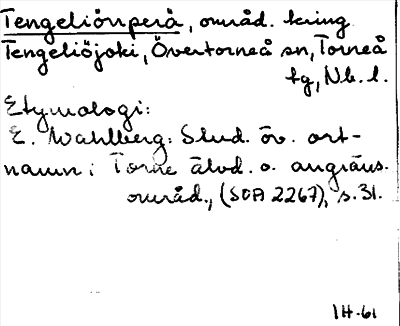 Tengeliönperä, område kring
Tengeliöjoki, Övertorneå sn, Torneå
tg, Nb. l.
Etymologi:
E. Wahlberg: Stud. öv. ort-
namn i Torne älvd. o. angräns.
område, (SOA 2267), s. 31.
IH-61